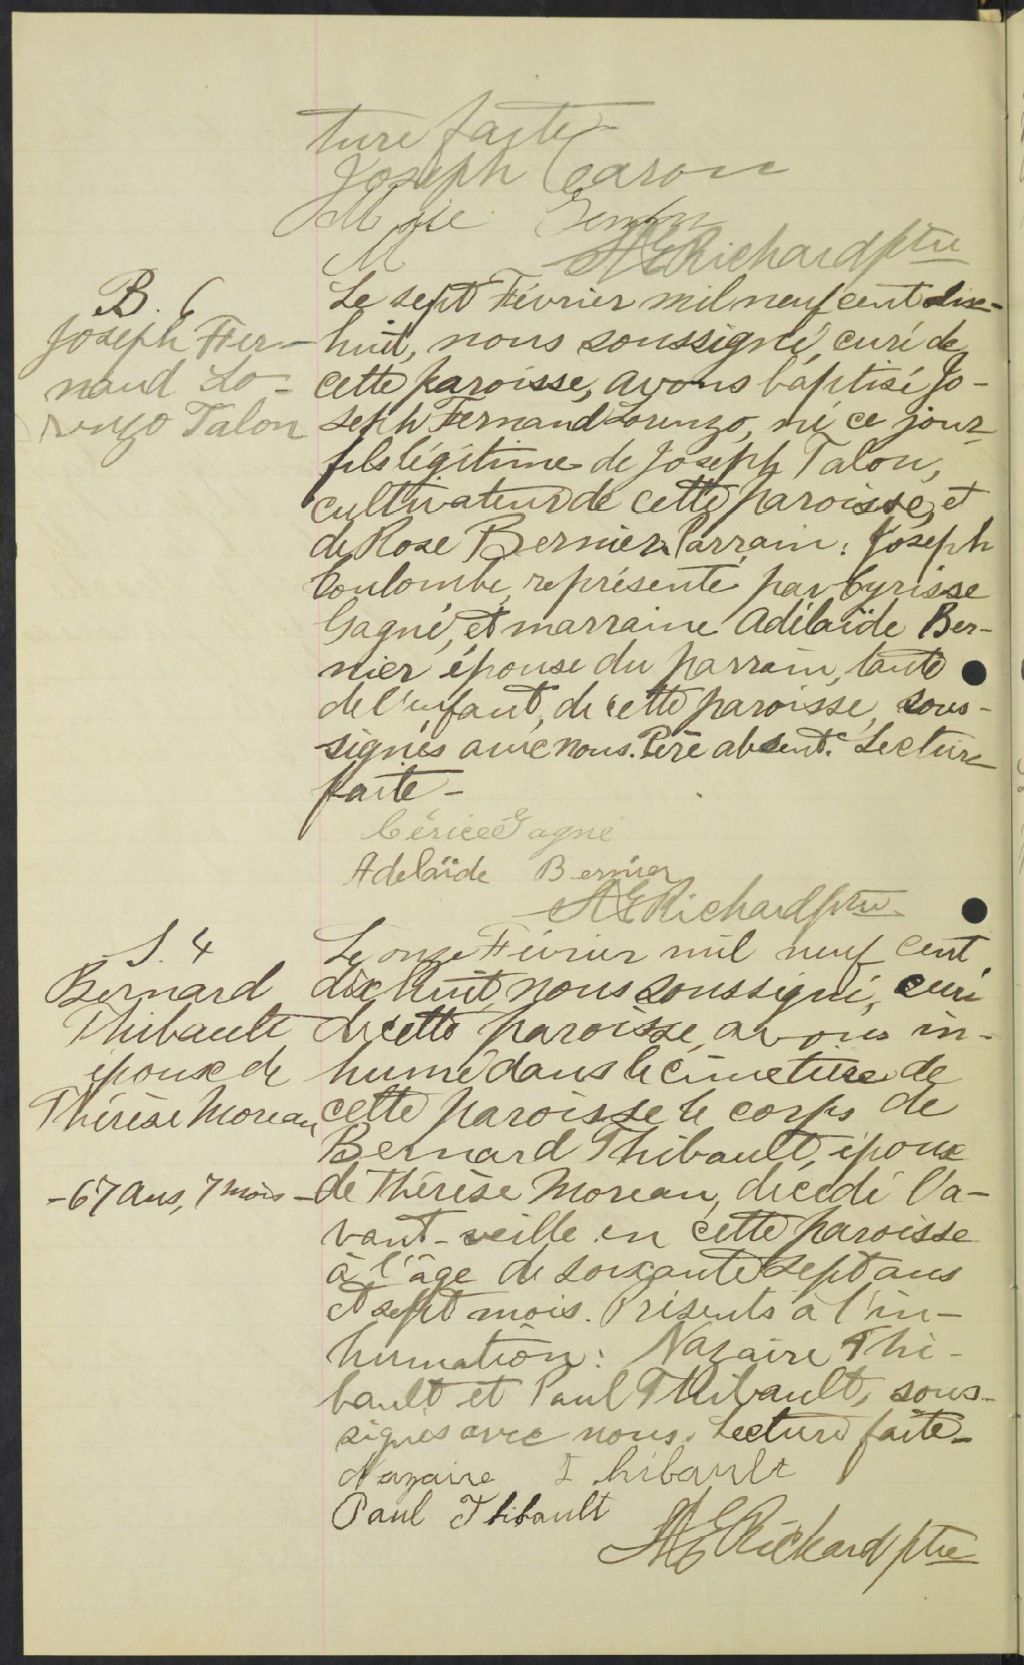 ture faite -
Joseph Caron
M
A E Richard ptre
B. 6
Joseph Fer-
nand Lo-
renzo Talon
Le sept Février mil neuf cent dix-
huit, nous soussigné, curé de
cette paroisse, avons baptisé Jo-
seph Fernand Lorenzo, né ce jour
fils légitime de Joseph Talon,
cultivateur de cette paroisse, et
de Rose Bernier. Parrain: Joseph
Coulombe, représenté par Cyrisse
Gagné, et marraine Adélaïde Ber-
nier épouse du parrain, tante
de l'enfant, de cette paroisse, sous-
signés avec nous. Père absent. Lecture
faite -
Cérice Gagné
Adelaïde Bernier
A E Richard ptre
S. 4
Bernard
Thibault
époux de
Thérèse Moreau
- 67 ans, 7 mois -
Le onze Février mil neuf cent
dix huit, nous soussigné, curé
de cette paroisse, avons in-
humé dans le cimetière de
cette paroisse le corps de
Bernard Thibault, époux
de Thérèse Moreau, décédé l'a-
vant-veille en cette paroisse
à l'âge de soixante sept ans
et sept mois. Présents à l'in-
humation: Nazaire Thi-
bault et Paul Thibault, sous-
signés avec nous. Lecture faite -
Nazaire Thibault
Paul Thibault
A E Richard ptre